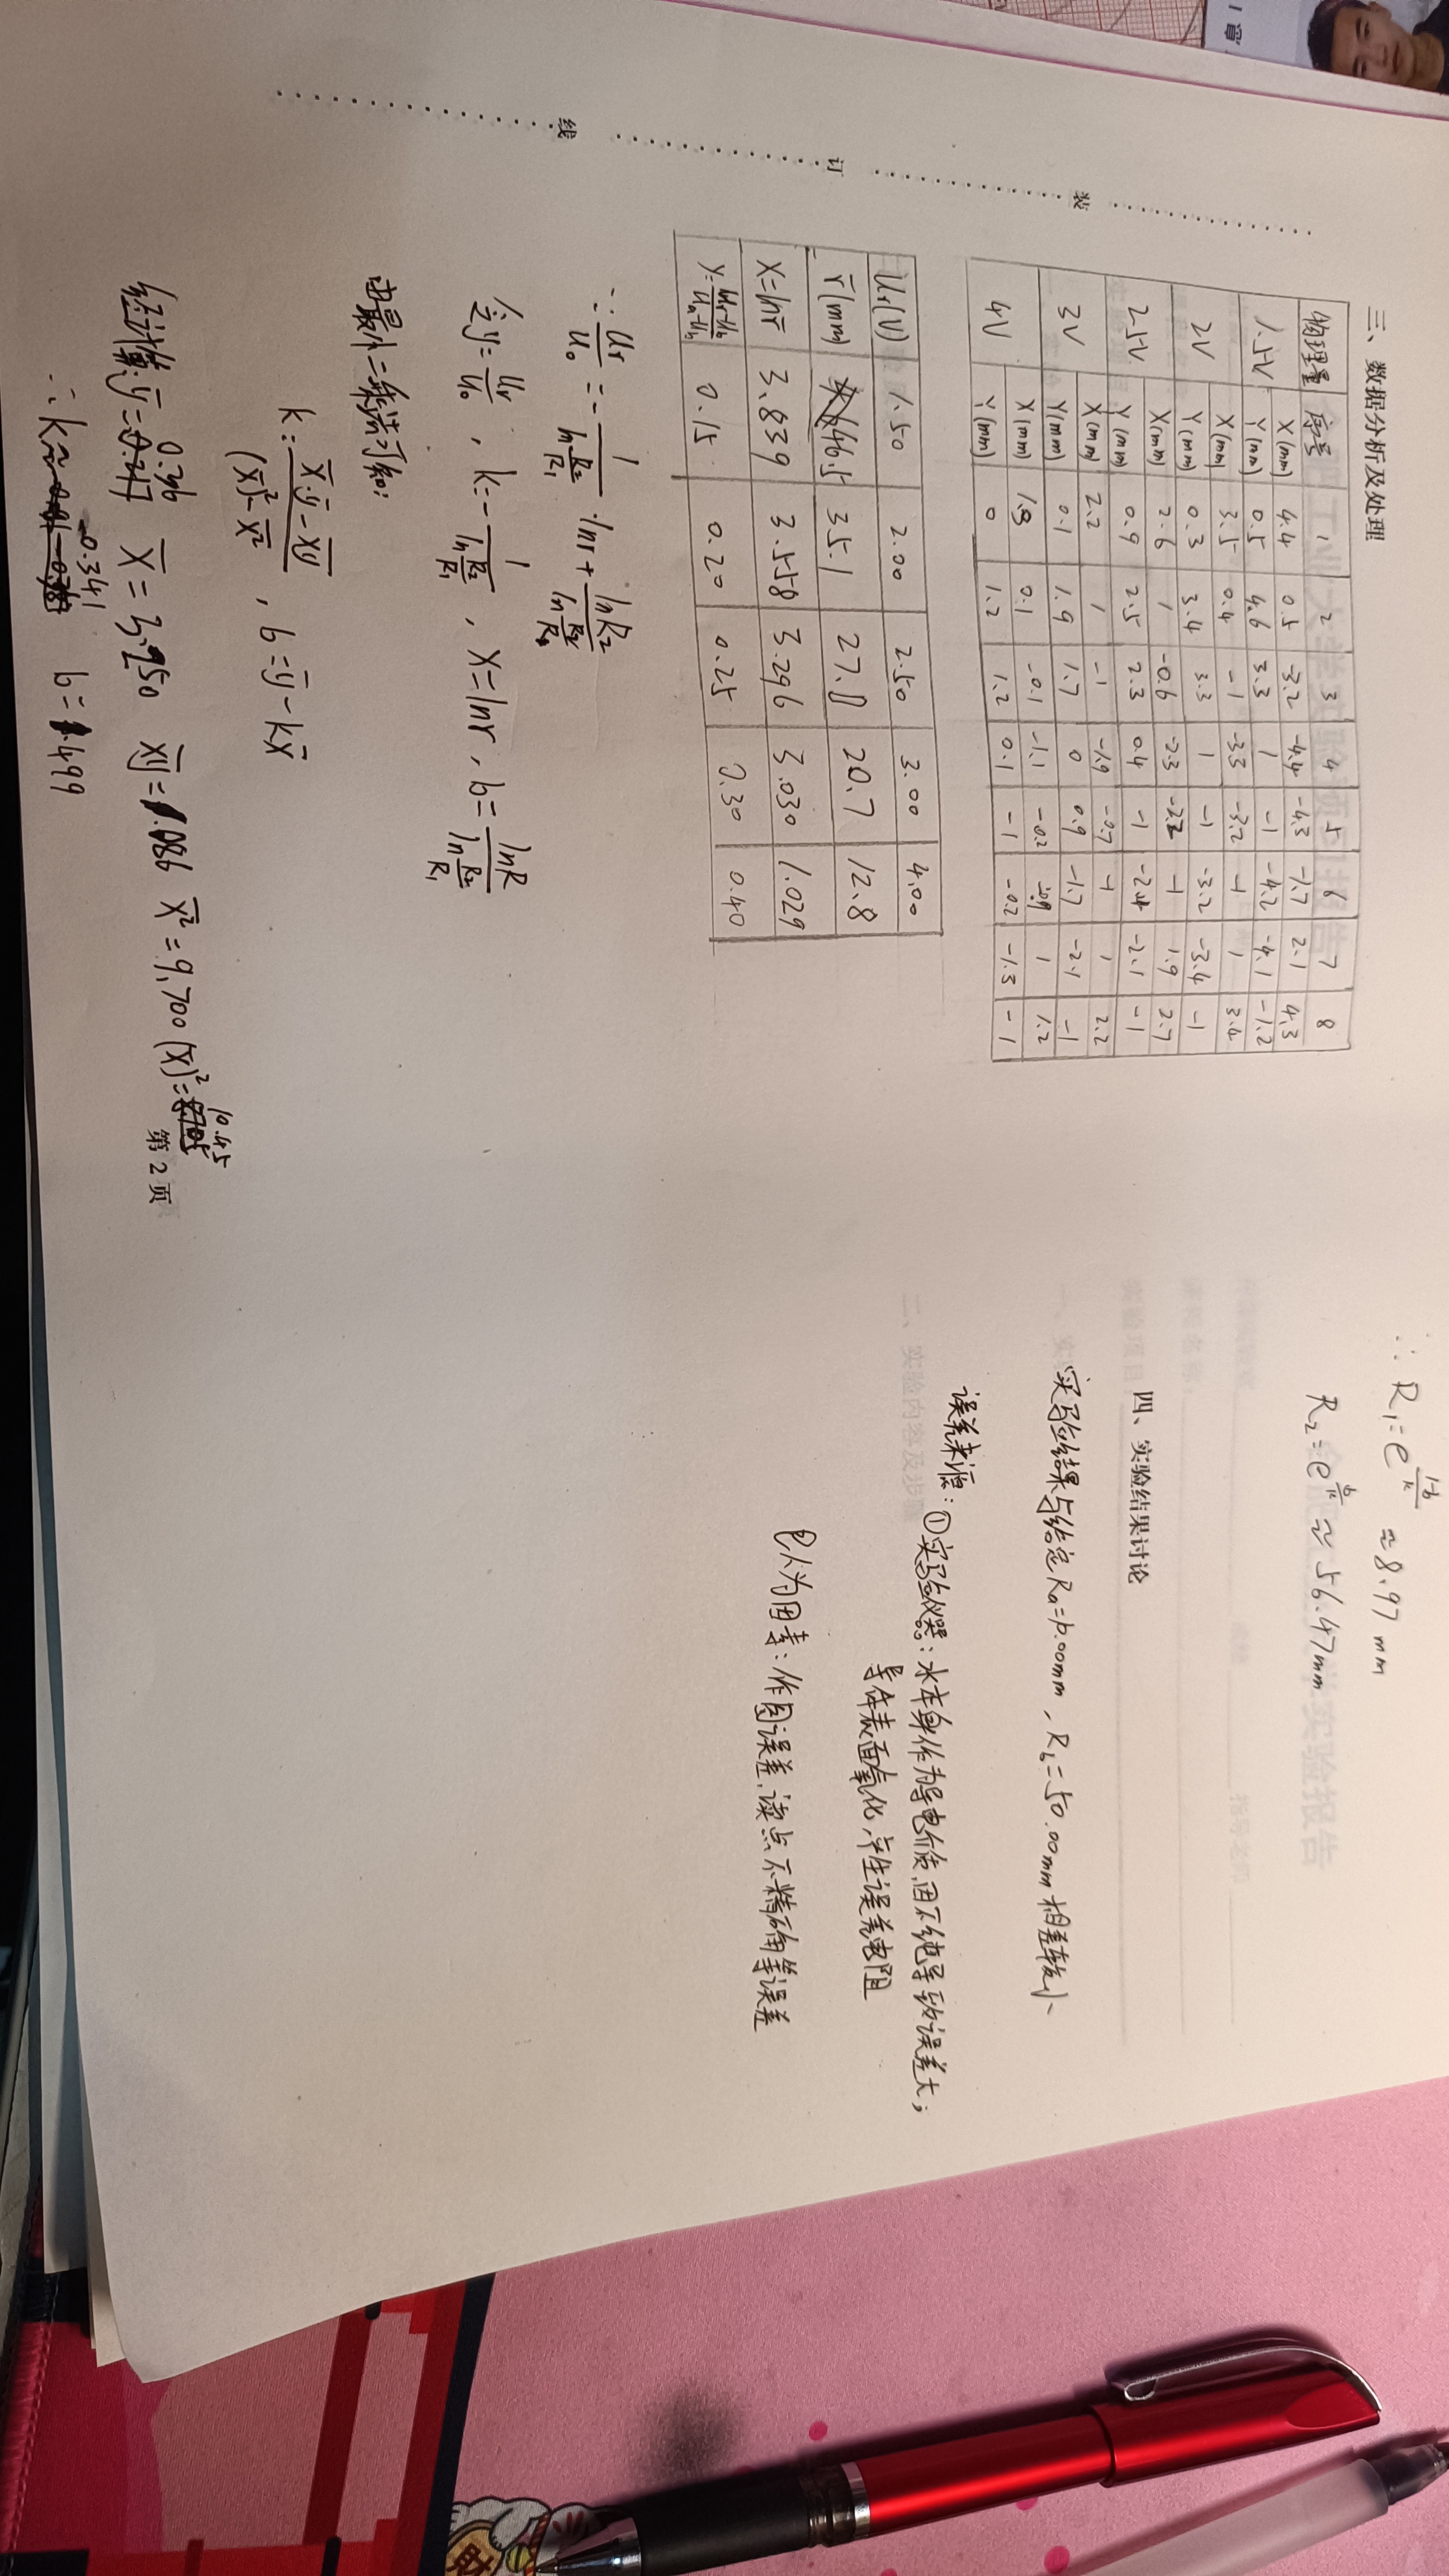 三、数据分析及处理
物理量 序号 1 2 3 4 5 6 7 8
1.5V X(mm) 4.4 0.5 -3.2 -4.4 -4.3 -1.7 2.1 4.3
Y(mm) 0.5 4.6 3.3 1 -1 -4.2 -4.1 -1.2
2V X(mm) 3.5 0.4 -1 -3.3 -3.2 -1 1 3.4
Y(mm) 0.3 3.4 3.3 1 -1 -3.2 -3.4 -1
2.5V X(mm) 2.6 1 -0.6 -2.3 -2.2 -1 1.9 2.7
Y(mm) 0.9 2.5 2.3 0.4 -1 -2.4 -2.1 -1
3V X(mm) 2.2 1 -1 -1.9 -0.7 -1 1 2.2
Y(mm) 0.1 1.9 1.7 0 0.9 -1.7 -2.1 -1
4V X(mm) 1.3 0.1 -0.1 -1.1 -0.2 -0.9 1 1.2
Y(mm) 0 1.2 1.2 0.1 -1 -0.2 -1.3 -1
Ur(V) 1.50 2.00 2.50 3.00 4.00
r̄(mm) 46.5 35.1 27.0 20.7 12.8
X=lnr̄ 3.839 3.558 3.296 3.030 1.029
y=(Ur-Ub)/(Ua-Ub) 0.15 0.20 0.25 0.30 0.40
∵ Ur/U₀ = -1/ln(R₂/R₁) ·lnr + lnR₂/ln(R₂/R₁)
令y=Ur/U₀ , k=-1/ln(R₂/R₁) , X=lnr , b=lnR/ln(R₂/R₁)
由最小二乘法可知:
k=(x̄·ȳ-x̄ȳ)/((x̄)²-x̄²) , b=ȳ-kx̄
经计算:ȳ=0.36 x̄=3.250 x̄ȳ=1.086 x̄²=9.700 (x̄)²=10.45
∴k≈-0.341 b=1.499
第 2 页
装
订
线
∴ R₁=e^((1-b)/k) ≈8.97 mm
R₂=e^(b/k) ≈ 56.47mm
合肥工业大学实验报告
指导老师
课程名称:
实验项目:
四、实验结果讨论
实验结果与给定Ra=10.00mm , Rb=50.00mm 相差较小
二、实验内容及步骤
误差来源:①实验仪器:水本身作为导电介质,因不纯导致误差大;
导体表面氧化,产生误差电阻
②人为因素:作图误差,读点不精确等误差
财